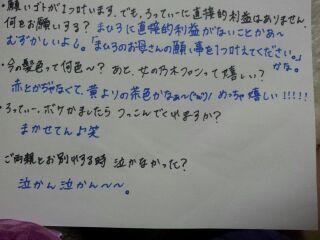 ・願いゴトが1つ叶います、でも、ろってぃーに直接的利益はありません。
何をお願いする？ まひろに直接的利益がないことかあ〜
むずかしいよ。「まひろのお母さんの願い事を1つ叶えてください。」
かな。
・今の髪色って何色〜？ あと、女の乃木ファンって嬉しい？
赤とかぢゃなくて、黄よりの茶色かなぁ〜 めっちゃ嬉しい!!!!!
・ろってぃー、ボケかましたらつっこんでくれますか？
まかせてん♪笑
ご両親とお別れする時 泣かなかった？
泣かん泣かん〜〜。